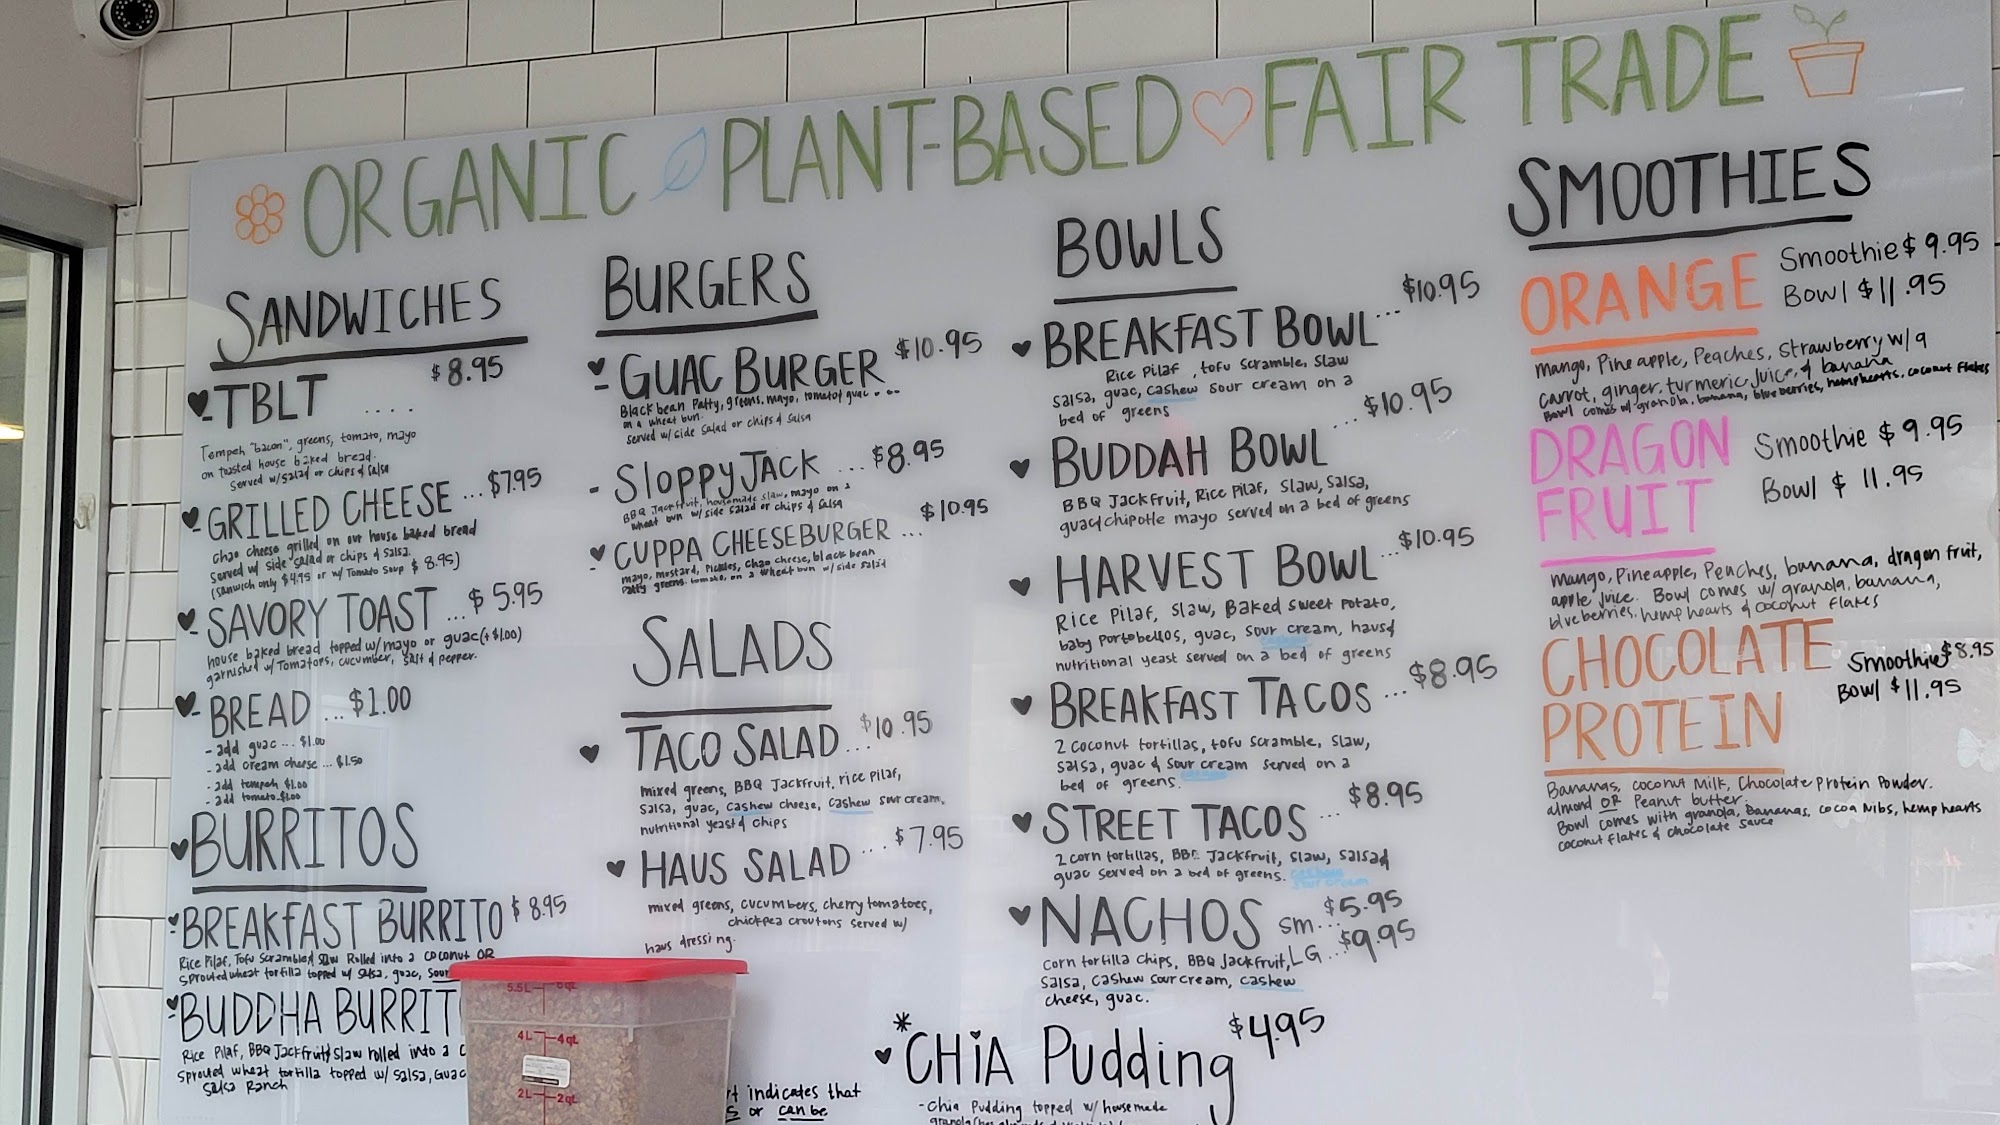 ORGANIC PLANT-BASED FAIR TRADE
SANDWICHES
TBLT .... $8.95
Tempeh "bacon", greens, tomato, mayo
on toasted house baked bread.
Served w/salad or chips & salsa
GRILLED CHEESE ... $7.95
Chao cheese grilled on our house baked bread
served w/ side salad or chips & salsa.
(sanwich only $4.95 or w/ Tomato Soup $8.95)
SAVORY TOAST ... $5.95
house baked bread topped w/mayo or guac (+$1.00)
garnished w/Tomatoes, cucumber, salt & pepper.
BREAD ... $1.00
- add guac ... $1.00
- add cream cheese ... $1.50
- add tempeh $1.00
- add tomato $1.00
BURRITOS
BREAKFAST BURRITO $8.95
Rice Pilaf, Tofu Scramble & Slaw Rolled into a coconut OR
sprouted wheat tortilla topped w/ salsa, guac, sour
BUDDHA BURRIT
Rice Pilaf, BBQ Jackfruit & Slaw rolled into a c
sprouted wheat tortilla topped w/ salsa, Guac
Salsa Ranch
BURGERS
GUAC BURGER $10.95
Black bean Patty, greens, mayo, tomato & guac
on a wheat bun.
served w/ side salad or chips & salsa
SLOPPY JACK ... $8.95
BBQ Jackfruit, housemade slaw, mayo on a
wheat bun w/ side salad or chips & salsa
CUPPA CHEESEBURGER ... $10.95
mayo, mustard, Pickles, Chao cheese, black bean
Patty greens, tomato, on a wheat bun w/ side salad
SALADS
TACO SALAD ... $10.95
mixed greens, BBQ Jackfruit, rice pilaf,
salsa, guac, cashew cheese, cashew sour cream,
nutritional yeast & chips
HAUS SALAD ... $7.95
mixed greens, cucumbers, cherry tomatoes,
chickpea croutons served w/
haus dressing.
indicates that
or can be
BOWLS
BREAKFAST BOWL ... $10.95
Rice Pilaf, tofu scramble, slaw
salsa, guac, cashew sour cream on a
bed of greens
BUDDAH BOWL ... $10.95
BBQ Jackfruit, Rice Pilaf, slaw, salsa,
guac & chipotle mayo served on a bed of greens
HARVEST BOWL ... $10.95
Rice Pilaf, slaw, Baked sweet potato,
baby portobellos, guac, sour cream, haus &
nutritional yeast served on a bed of greens
BREAKFAST TACOS ... $8.95
2 coconut tortillas, tofu scramble, slaw,
salsa, guac & sour cream served on a
bed of greens.
STREET TACOS ... $8.95
2 corn tortillas, BBQ Jackfruit, slaw, salsa &
guac served on a bed of greens. cashew
sour cream
NACHOS SM... $5.95
LG... $9.95
Corn tortilla chips, BBQ Jackfruit,
salsa, cashew sour cream, cashew
cheese, guac.
*CHIA Pudding $4.95
- Chia Pudding topped w/ housemade
SMOOTHIES
ORANGE Smoothie $9.95
Bowl $11.95
mango, Pineapple, Peaches, strawberry w/a
carrot, ginger, turmeric juice, & banana
Bowl comes w/ granola, banana, blueberries, hemphearts, coconut flakes
DRAGON FRUIT Smoothie $9.95
Bowl $11.95
mango, Pineapple, Peaches, banana, dragon fruit,
apple juice. Bowl comes w/ granola, banana,
blueberries, hemp hearts & coconut flakes
CHOCOLATE PROTEIN Smoothie $8.95
Bowl $11.95
Bananas, coconut Milk, Chocolate Protein Powder.
almond OR Peanut butter.
Bowl comes with granola, Bananas, cocoa nibs, hemp hearts
coconut flakes & chocolate sauce
5.5L 6qt
4L 4qt
2L 2qt